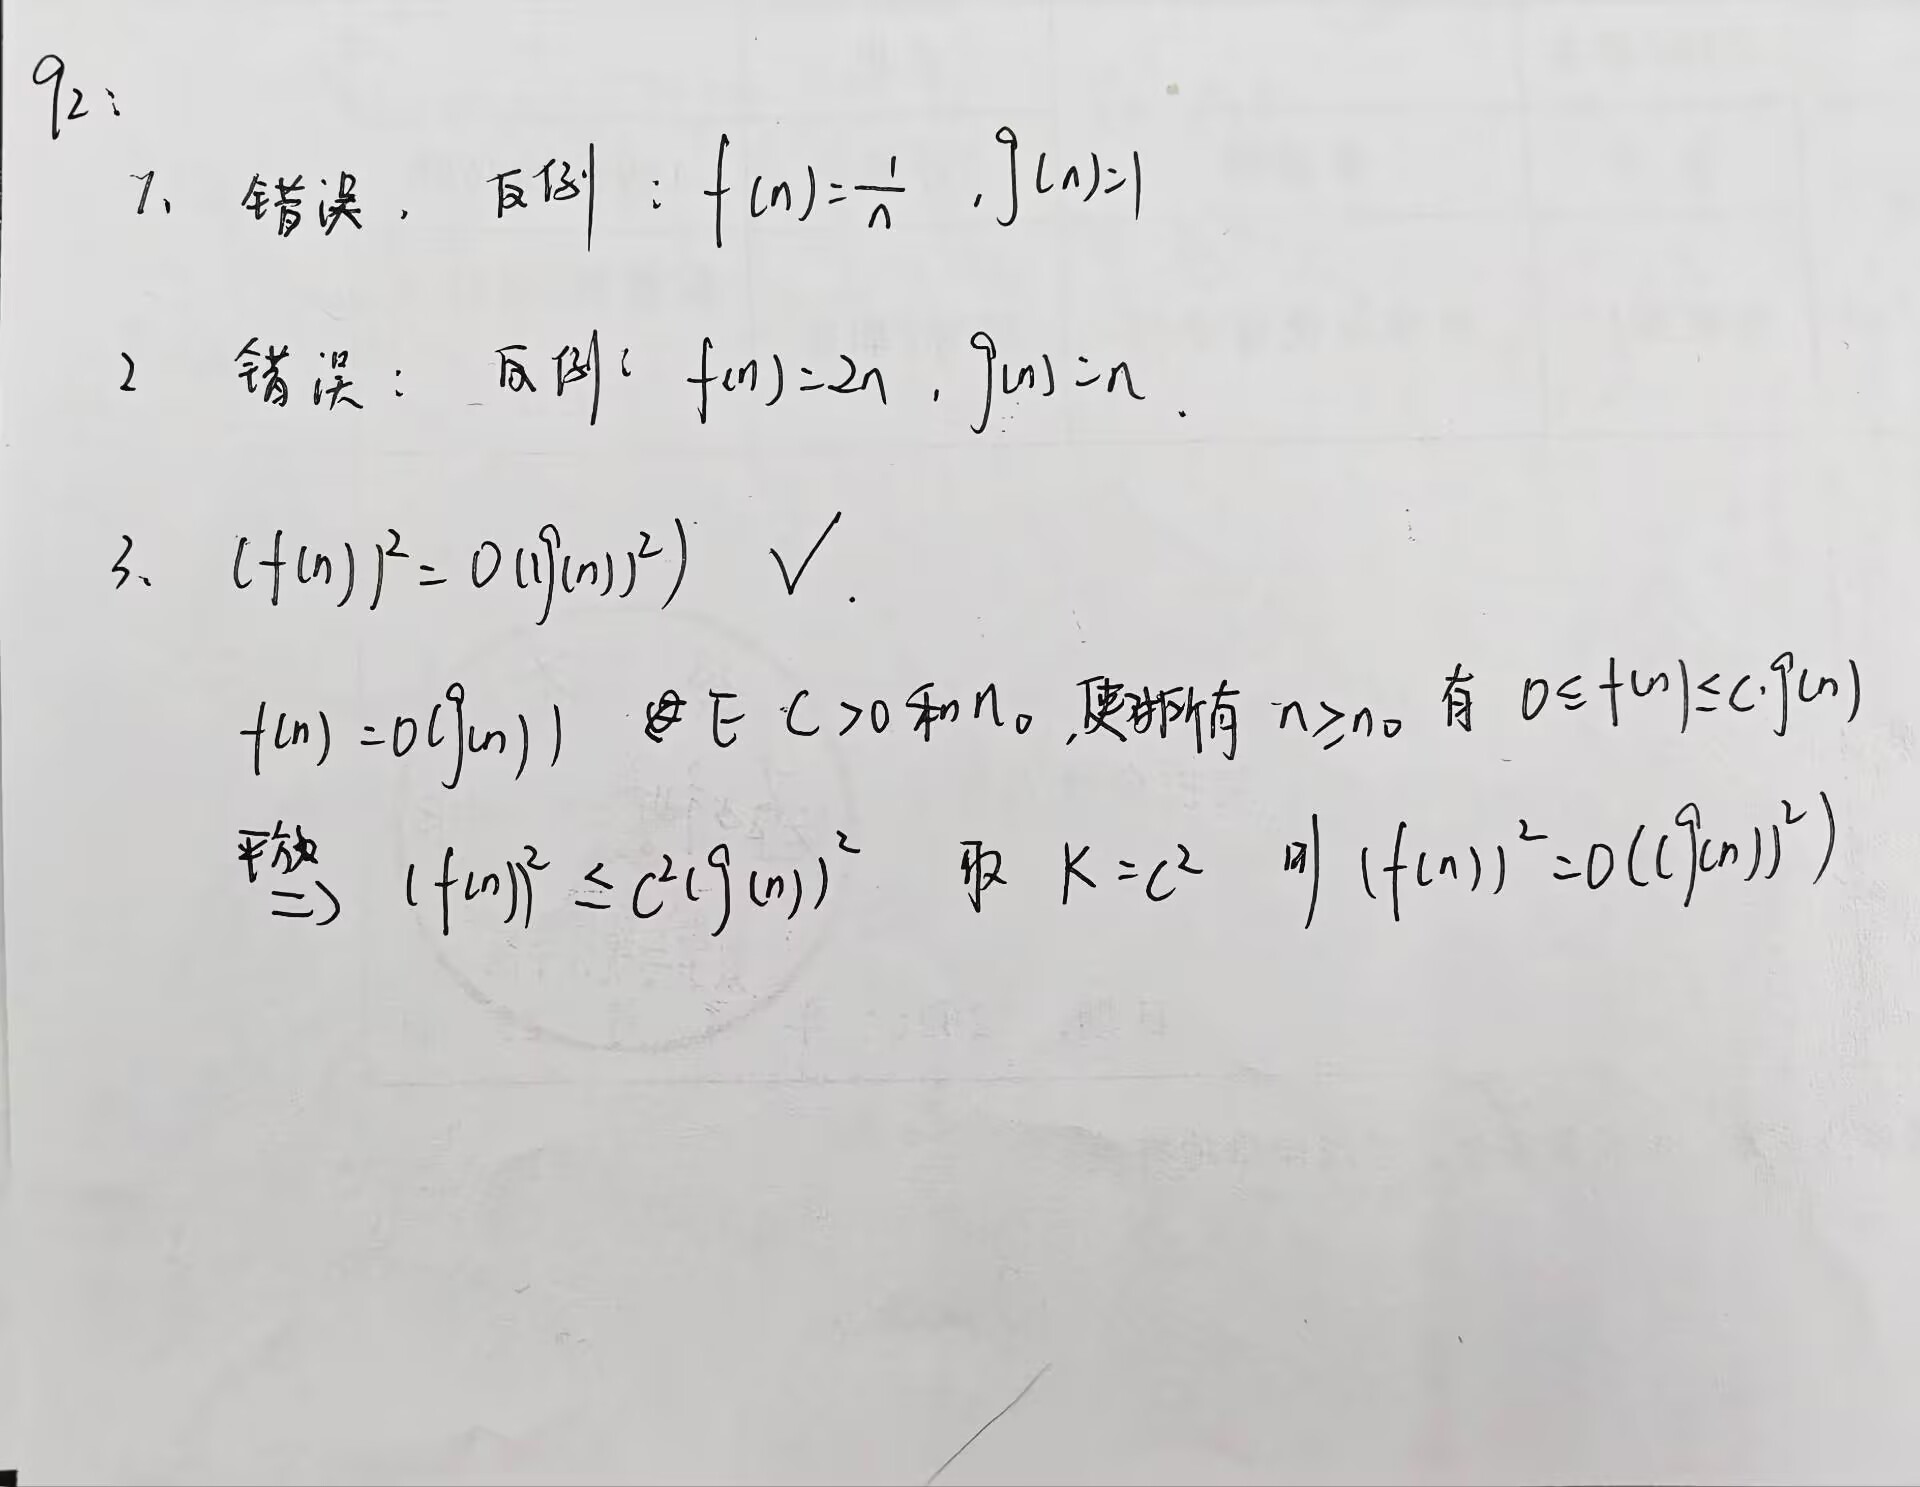 q2:
1、错误, 反例: f(n)=1/n, g(n)=1
2 错误: 反例: f(n)=2n, g(n)=n.
3、(f(n))²=O((g(n))²) ✓.
f(n)=O(g(n)) ∃ C>0和n₀,使对所有 n≥n₀ 有 0≤f(n)≤c·g(n)
平放
=> (f(n))²≤c²(g(n))² 取 K=c² 则 (f(n))²=O((g(n))²)